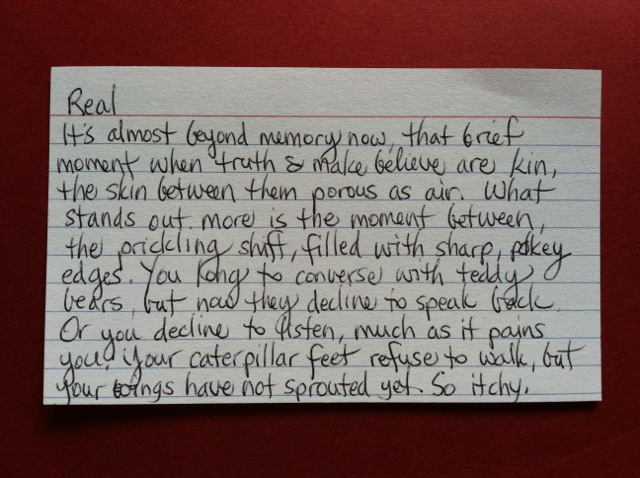 Real
It's almost beyond memory now, that brief
moment when truth & make believe are kin,
the skin between them porous as air. What
stands out more is the moment between,
the prickling shift, filled with sharp, pokey
edges. You long to converse with teddy
bears, but now they decline to speak back.
Or you decline to listen, much as it pains
you. Your caterpillar feet refuse to walk, but
your wings have not sprouted yet. So itchy.